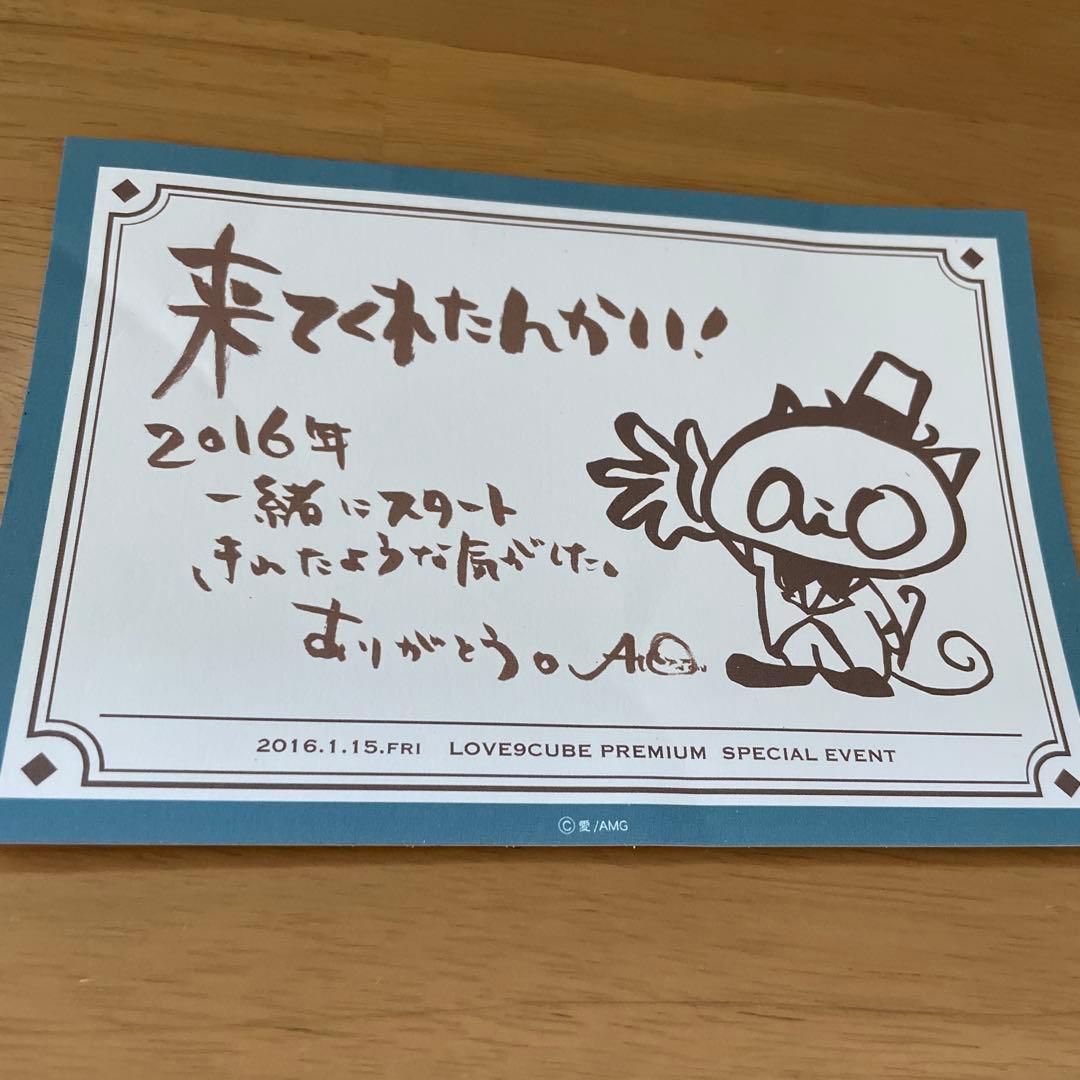 来てくれたんかい!
2016年
一緒にスタート
きれたような気がした。
ありがとう。AiO
aiO
2016.1.15.FRI LOVE9CUBE PREMIUM SPECIAL EVENT
©愛/AMG